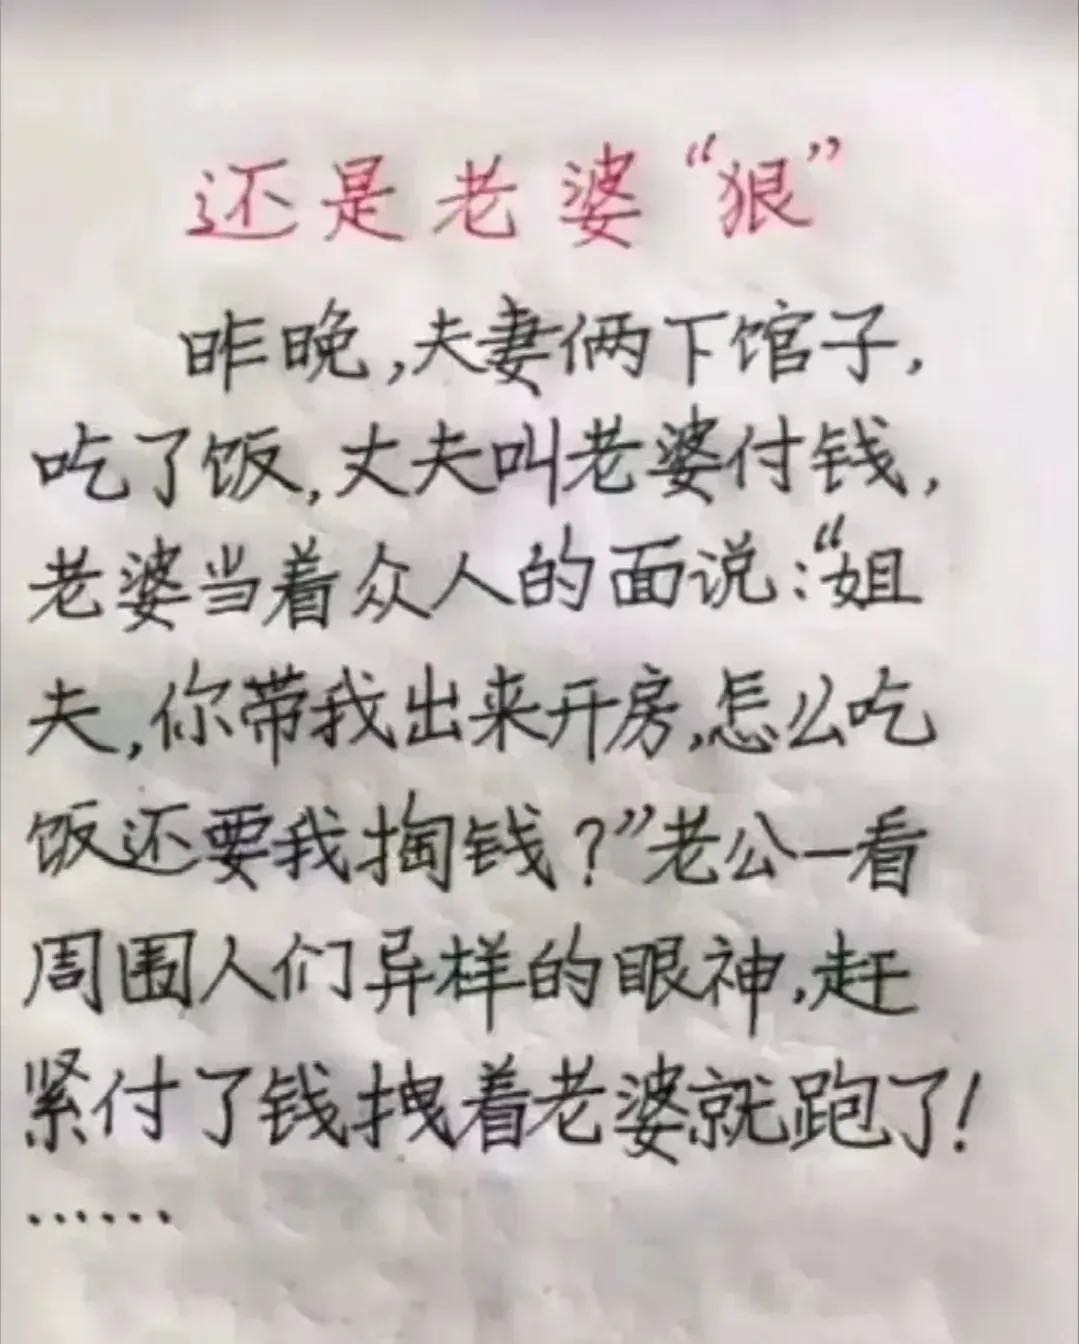 还是老婆“狠”
昨晚,夫妻俩下馆子,
吃了饭,丈夫叫老婆付钱,
老婆当着众人的面说:“姐
夫,你带我出来开房,怎么吃
饭还要我掏钱?”老公一看
周围人们异样的眼神,赶
紧付了钱拽着老婆就跑了!
······